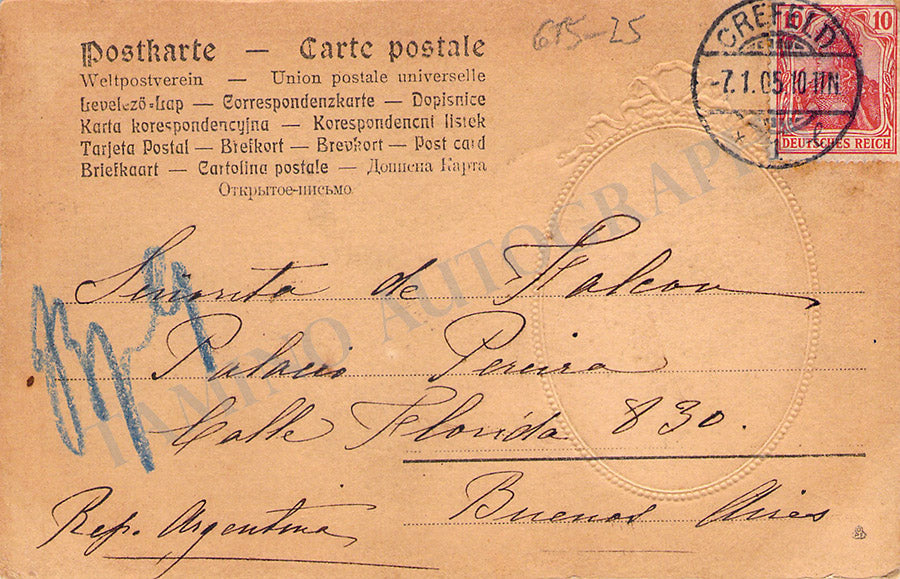 Postkarte — Carte postale
Weltpostverein — Union postale universelle
Levelező-Lap — Correspondenzkarte — Dopisnice
Karta korespondencyjna — Korespondencni listek
Tarjeta Postal — Brefkort — Brevkort — Post card
Briefkaart — Cartolina postale — Дописна Карта
Открытое-письмо
615-25
CREFELD
-7.1.05.10-11N
1
10 10
DEUTSCHES REICH
Señorita de Falcon
Palacio Pereira
Calle Florida 830.
Buenos Aires
Rep. Argentina
TAMINO AUTOGRAPHS